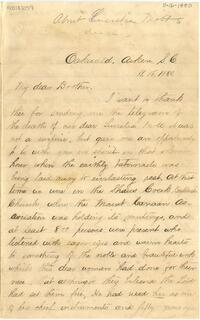 About Lucretia Mott's
Oakwald, Aiken S.C.
11.15.1880
My dear Brother.
I want to thank
thee for sending me the telegram of
the death of our dear Lucretia. It was
not a surprise, but gave me an opportunity
to be with you in spirit in that solemn
hour when the earthly tabernacle was
being laid away in everlasting rest. At this
time we were in the Shaws Creek Baptist
Church when the Mount Canaan As-
sociation was holding its meetings, and
at least 800 persons were present who
listened with eager eyes and warm hearts
to something of the noble and beautiful work
which this dear woman had done for their
race. But although they believe the Lord
had set them free, He used her as one
of his chief instruments and fifty years